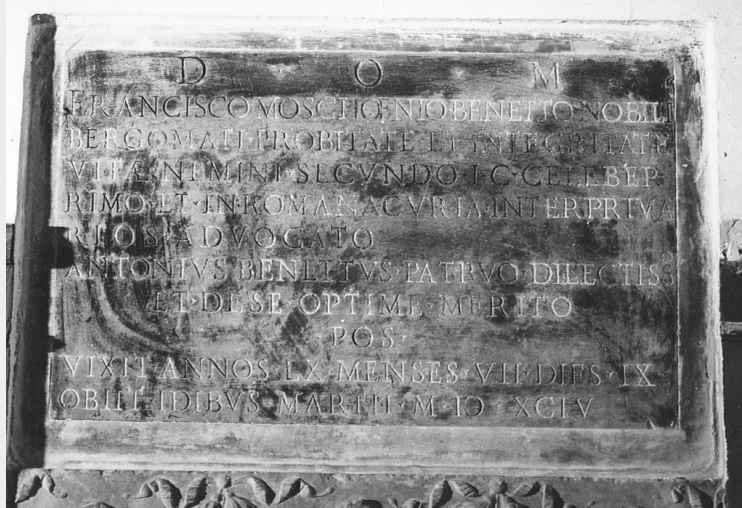 D O M
FRANCISCO·MOSCHENIO BENETTO·NOBILI
BERGOMATI PROBITATE ET INTEGRITATE
VITÆ·NEMINI SECVNDO·I·C·CELEBER
RIMO·ET·IN·ROMANA CVRIA·INTER PRIMA
RIOS·ADVOGATO
ANTONIVS·BENETTVS·PATRVO·DILECTISS
ET·DE SE OPTIME·MERITO
·POS·
VIXIT·ANNOS·LX·MENSES·VII·DIES·IX
OBIIT IDIBVS·MARTII·M·IƆ XCIV